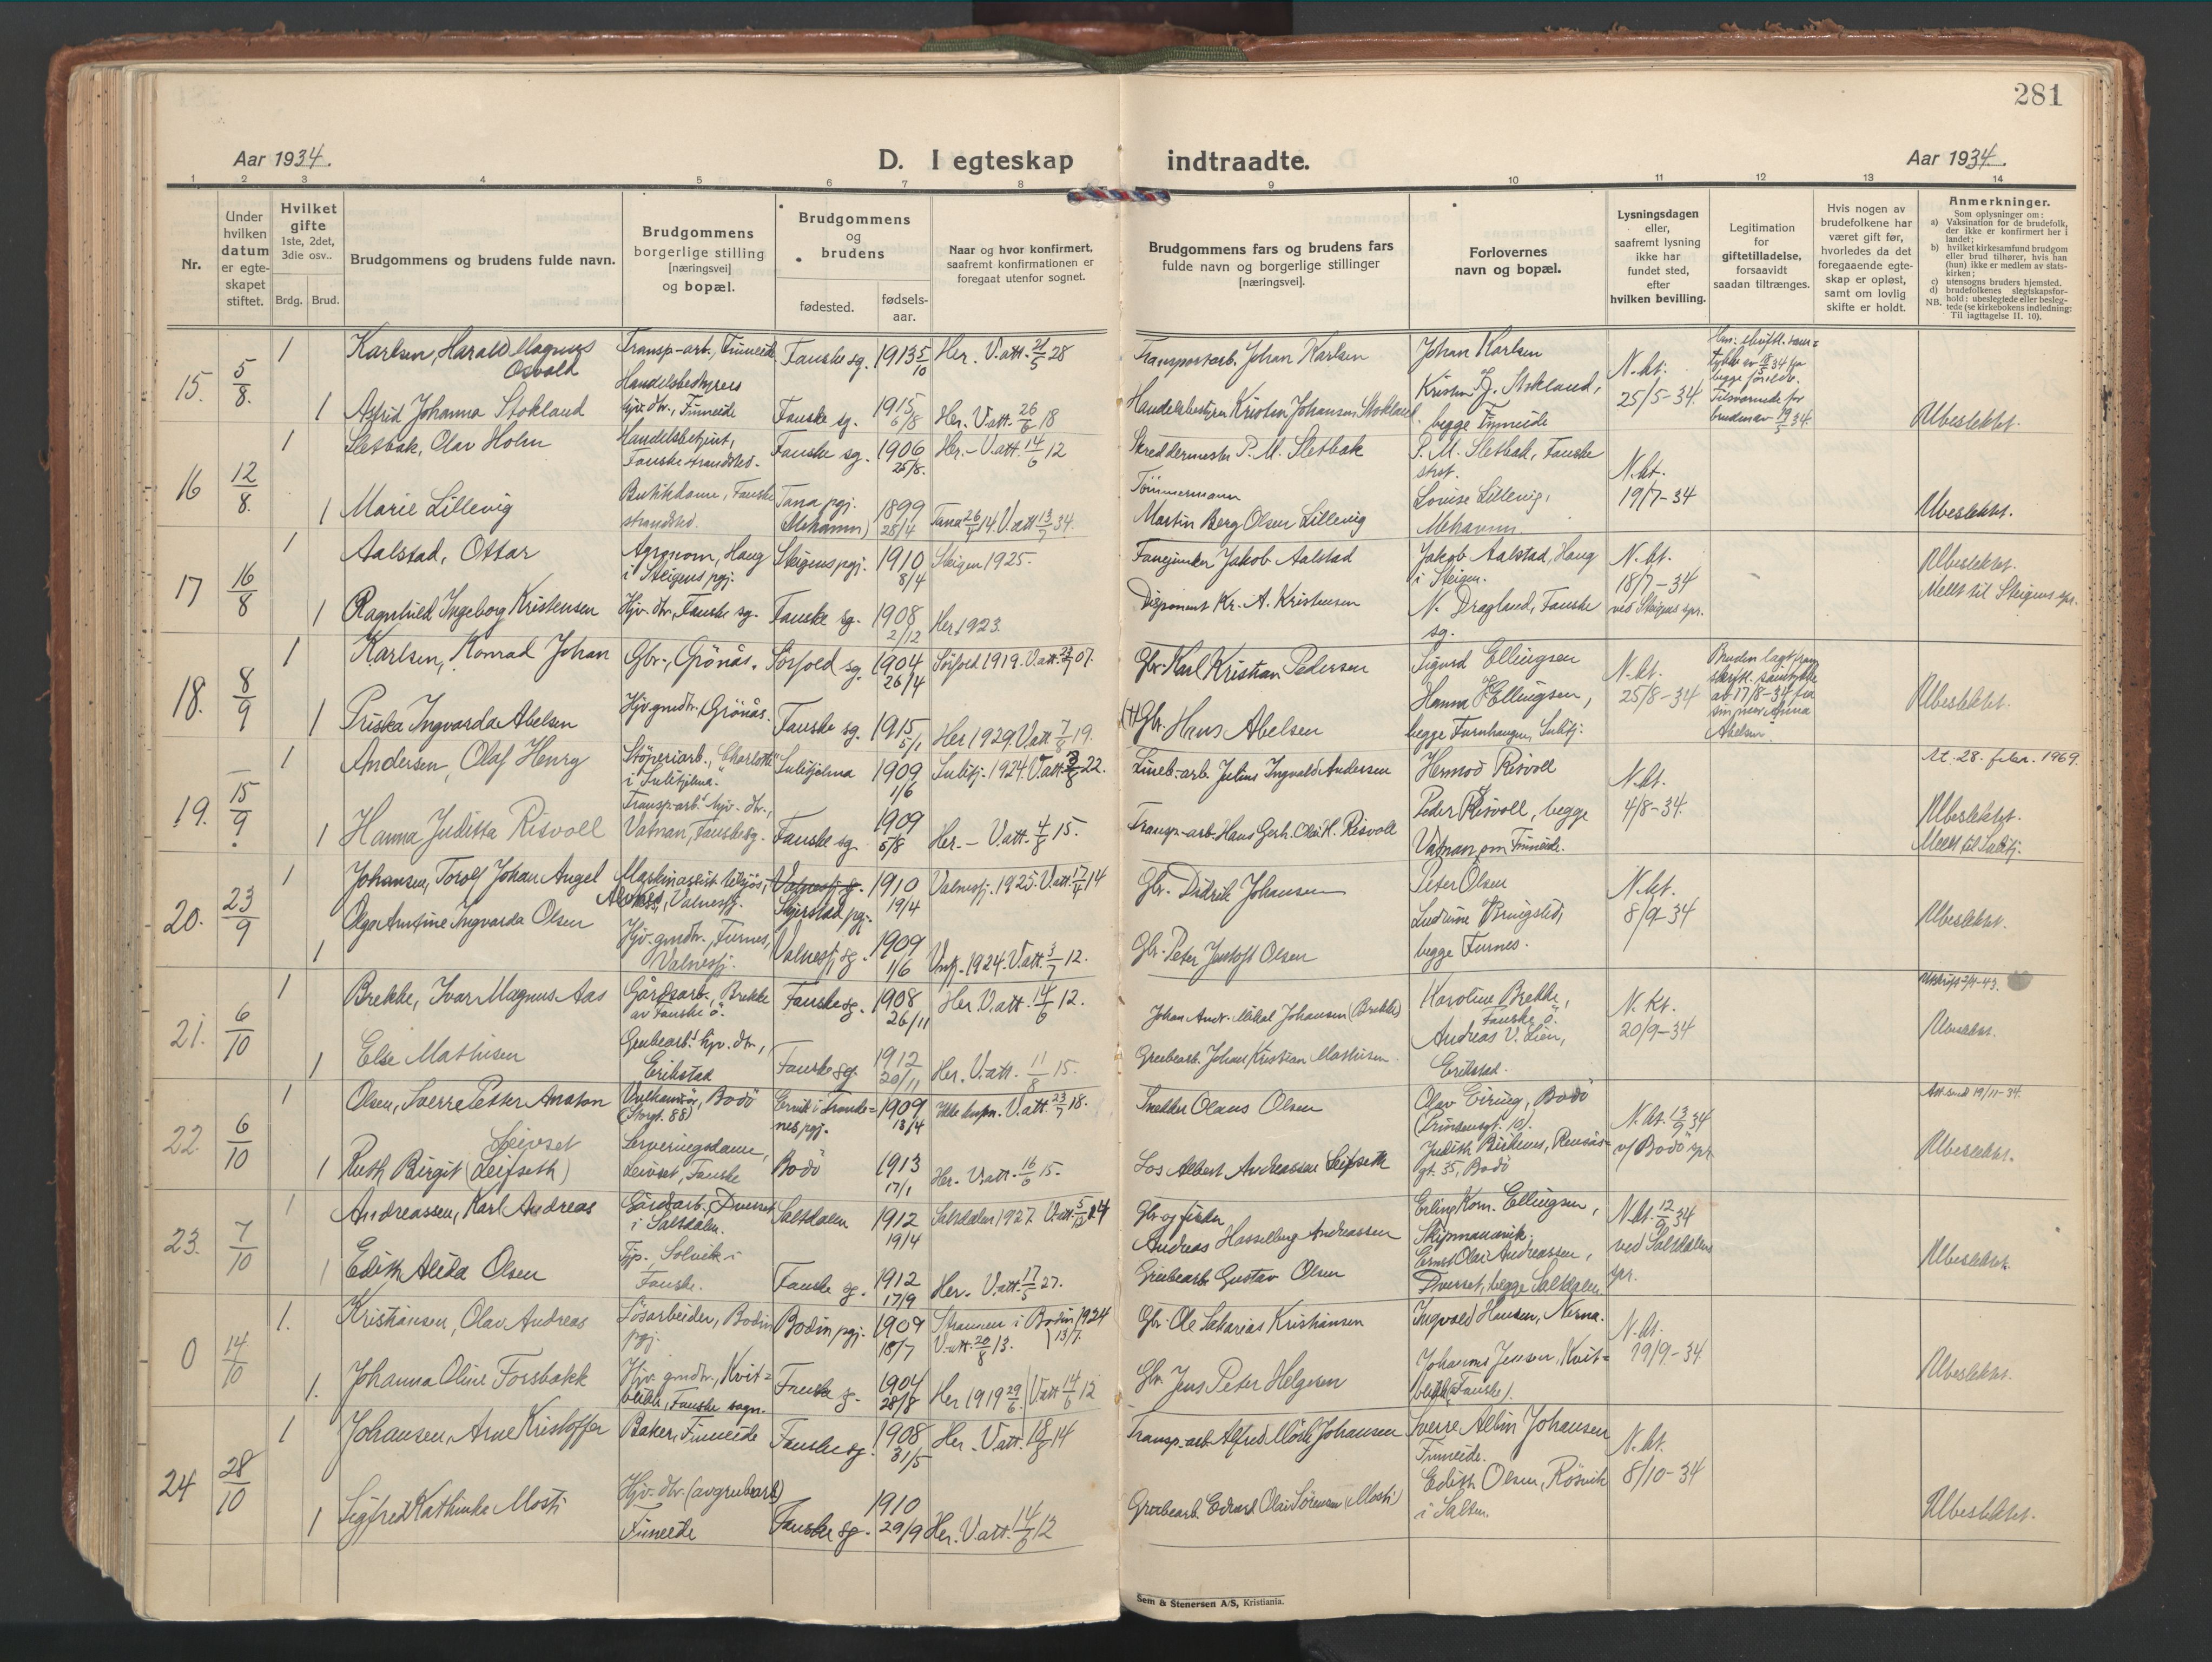 281
Aar 1934.
D. I egteskap indtraadte.
Aar 1934.
1 2 3 4 5 6 7 8 9 10 11 12 13 14
Nr.
Under hvilken datum er egteskapet stiftet.
Hvilket gifte
1ste, 2det, 3die osv..
Brdg. Brud.
Brudgommens og brudens fulde navn.
Brudgommens borgerlige stilling [næringsvei] og bopæl.
Brudgommens og brudens
fødested.
fødselsaar.
Naar og hvor konfirmert, saafremt konfirmationen er foregaat utenfor sognet.
Brudgommens fars og brudens fars fulde navn og borgerlige stillinger [næringsvei].
Forlovernes navn og bopæl.
Lysningsdagen eller, saafremt lysning ikke har fundet sted, efter hvilken bevilling.
Legitimation for giftetilladelse, forsaavidt saadan tiltrænges.
Hvis nogen av brudefolkene har været gift før, hvorledes da det foregaaende egteskap er opløst, samt om lovlig skifte er holdt.
Anmerkninger.
Som oplysninger om:
a) Vaksination for de brudefolk, der ikke er konfirmert her i landet;
b) hvilket kirkesamfund brudgom eller brud tilhører, hvis han (hun) ikke er medlem av statskirken;
c) utensogns bruders hjemsted.
d) brudefolkenes slegtskapsforhold: ubeslegtede eller beslegtede (se kirkebokens indledning: Til iagttagelse II. 10).
NB.
15. 5/8. 1 Karlsen, Harald Magnus Osvald
Transp-arb., Finneide
Fauske sg. 1913 5/10
Her. V.att. 21/5 28
Transportarb. Johan Karlsen
Johan Karlsen
N.kt. 25/5-34.
1 Astrid Johanna Stokland
Handelsbestyrers hjv. dtr., Finneide
Fauske sg. 1915 6/8
Her. V.att. 26/6 18
Handelsbestyrer Kristen Johansen Stokland
Kristen J. Stokland, begge Finneide
Ubeslektet.
16 12/8. 1 Sletbak, Olav Holm
Handelsbetjent, Fauske strandsted.
Fauske sg. 1906 25/8.
Her.- V.att. 14/6 12
Skreddermester P. M. Sletbak
P. M. Sletbak, Fauske strst.
N.kt. 19/7-34
1 Marie Lillevig
Butikdame, Fauske strandsted.
Tana pgj. (Mehamn) 1899 28/4
Tana 26/4 14 V.att 13/7 34.
Tömmermann Martin Berg Olsen Lillevig
Lovise Lillevig, Mehamn
Ubeslektet.
17 16/8 1 Aalstad, Ottar
Agronom, Haug i Steigens pgj.
Steigens pgj. 1910 8/4
Steigen 1925.
Fanejunker Jakob Aalstad
Jakob Aalstad, Haug i Steigen.
N.kt. 18/7-34 ved Steigens spr.
Ubeslektet.
Meldt til Steigens spr.
1 Ragnhild Ingeborg Kristensen
Hjv. dtr., Fauske sg.
Fauske sg. 1908 2/12
Her 1923.
Disponent Kr. A. Kristensen
N. Dragland, Fauske sg.
18. 8/9 1 Karlsen, Konrad Johan
Gbr., Grönås.
Sörfold sg. 1904 26/4
Sörfold 1919. V.att. 07.
Gbr. Karl Kristian Pedersen
Sigurd Ellingsen
N.kt. 25/8-34
Bruden lagt fram skriftl. samtykke av 17/8-34 fra sin mor Anna Abelsen.
1 Priska Ingvarda Abelsen
Hjv. gmdtr., Grönås.
Fauske sg. 1915 5/1
Her 1929. V.att 7/8 19.
(†) Gbr. Hans Abelsen
Hanna J. Ellingsen, begge Furnhaugen, Sulitj.
Ubeslektet.
19. 15/9. 1 Andersen, Olaf Henry
Støperiarb., "Charlotta" i Sulitjelma.
Sulitjelma 1909 1/6
Sulitj. 1924. V.att. 3/8 22.
Lineb.-arb. Julius Ingvald Andersen
Hermod Risvoll
N.kt. 4/8-34.
At. 28. febr. 1969.
1 Hanna Juditta Risvoll
Transp.arb.s hjv. dtr., Vatnan, Fauske sg.
Fauske sg. 1909 5/8
Her.- V.att. 4/8 15.
Transp-arb. Hans Gerh. Olai H. Risvoll
Peder Risvoll, begge Vatnan pr. Finneide.
Ubeslektet.
Meldt til Sulitj.
20. 23/9 1 Johansen, Torolf Johan Angel
Valnesfj.
Skjerstad pgj. 1910 19/4
Valnesfj. 1925. V.att 17/4 14
Gbr. Didrik Johansen
Peter Olsen
N.kt. 8/9-34
1 Olga Antine Ingvarda Olsen
Hjv. gmdtr., Furnes, Valnesfj.
Valnesfj. sg. 1909 1/6
Vnfj. 1924. V.att 3/7 12.
Gbr. Peter Jentoft Olsen
begge Furnes.
Ubeslektet.
21. 6/10 1 Brekke, Ivar Magnus Aas
Gårdsarb., Brekke av Fauske ö.
Fauske sg. 1908 26/11
Her V.att. 14/6 12.
Johan Andr. Mikal Johansen (Brekke)
Karoline Brekke, Fauske ö.
N.kt. 20/9-34
1 Else Mathisen
Grubearb.s hjv. dtr., Erikstad
Fauske sg. 1912 20/11
Her. V.att. 11/8 15.
Grubearb. Johan Kristian Mathisen
Andreas V. Lien, Erikstad.
Ubeslektet.
22. 6/10 1 Olsen, Sverre Petter Anaton
Bodö (Storgt. 88)
1909 18/4
V.att. 23/7 18.
Snekker Olaus Olsen
Olav Eiring, Bodö (Prinsensgt. 10).
N.kt. 13/9 34 v/ Bodö spr
Att. sendt 19/11-34.
1 Ruth Birgit Leivset (Leifseth)
Serveringsdame, Leivset, Fauske
Bodö 1913 17/1
Her- V.att. 16/6 15.
Los Albert Andreassen Leifseth
Judith Birkenes, Rensåsgt. 35, Bodö
Ubeslektet.
23. 7/10 1 Andreassen, Karl Andreas
Gårdarb., Dverset i Saltdalen.
Saltdalen 1912 19/4
Saltdalen 1927. V.att. 5/12 14
Gbr. og fisker Andreas Hasselberg Andreassen
Erling Korn. Ellingsen, Skipmannvik.
N.kt. 12/9 34 ved Saltdalens spr.
1 Edith Alida Olsen
Tjp. Solvik i Fauske.
Fauske sg. 1912 17/9
Her. V.att. 17/5 27.
Grubearb. Gustav Olsen
Ernst Olai Andreassen, Dverset, begge Saltdalen
Ubeslektet.
0 14/10 1. Kristiansen, Olav Andreas
Lösarbeider, Bodin pgj.
Bodin pgj. 1909 18/7
Straumen i Bodin 1924 13/7.
V.att. 20/8 13.
Gbr. Ole Sakarias Kristiansen
Ingvald Hansen, Nerna.
N.kt. 19/9-34
1. Johanna Oline Forsbakk
Hjv. gmdtr., Kvitblikk, Fauske sogn.
Fauske sg. 1904 28/8
Her 1919 29/6. V.att 14/6 12
Gbr. Jens Peter Helgesen
Johannes Jensen, Kvitblikk (Fauske).
Ubeslektet.
24 28/10 1 Johansen, Arne Kristoffer
Baker, Finneide
Fauske sg. 1908 31/5
Her. V.att. 18/8 14
Transp-arb. Alfred Johansen
Sverre Albin Johansen Finneide.
N.kt. 8/10-34
1 Sigfred Kathinka Mosti
Hjv. dtr. (av grubearb) Finneide
Fauske sg. 1910 29/9
Her. V.att. 14/6 12
Grubearb. Edvard Olai Sörensen (Mosti)
Edith Olsen, Rösvik i Salten.
Ubeslektet.
Sem & Stenersen A/S, Kristiania.